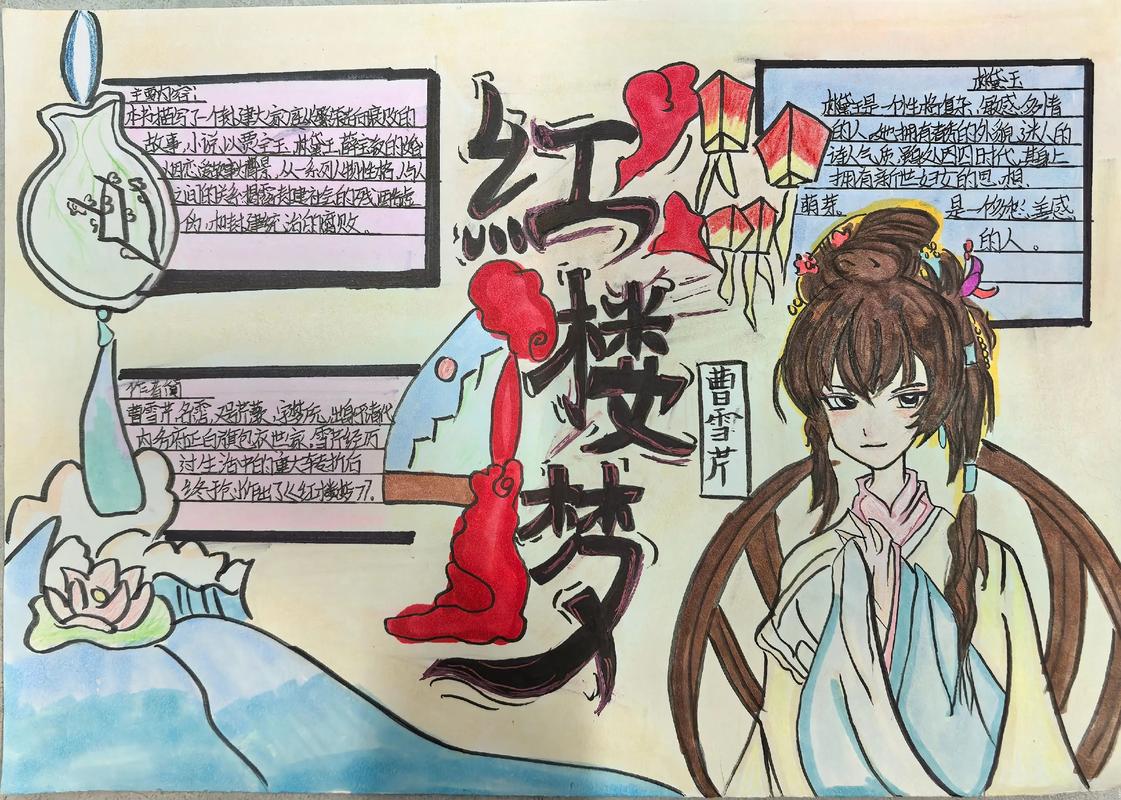 主要内容:
本书描写了一个封建大家庭从繁荣向腐败的
故事,小说以贾宝玉、林黛玉、薛宝钗的婚
姻恋爱故事背景,从一系列人物性格,人与人
之间的关系揭露封建社会的残酷
的,和封建统治的腐败。
红
楼
梦
曹雪芹
林黛玉
林黛玉是一个性格复杂、敏感多情
的人,她拥有清秀的外貌、迷人的
诗人气质,虽处囚囚时代,其身上
拥有新世妇女的思想
萌芽。 是一个多愁善感
的人。
作者简
曹雪芹名霑,又号芹溪、字梦阮,出身于清代
内务府正白旗包衣世家,雪芹经历
过生活中的重大转折后
终于创作出了《红楼梦》。